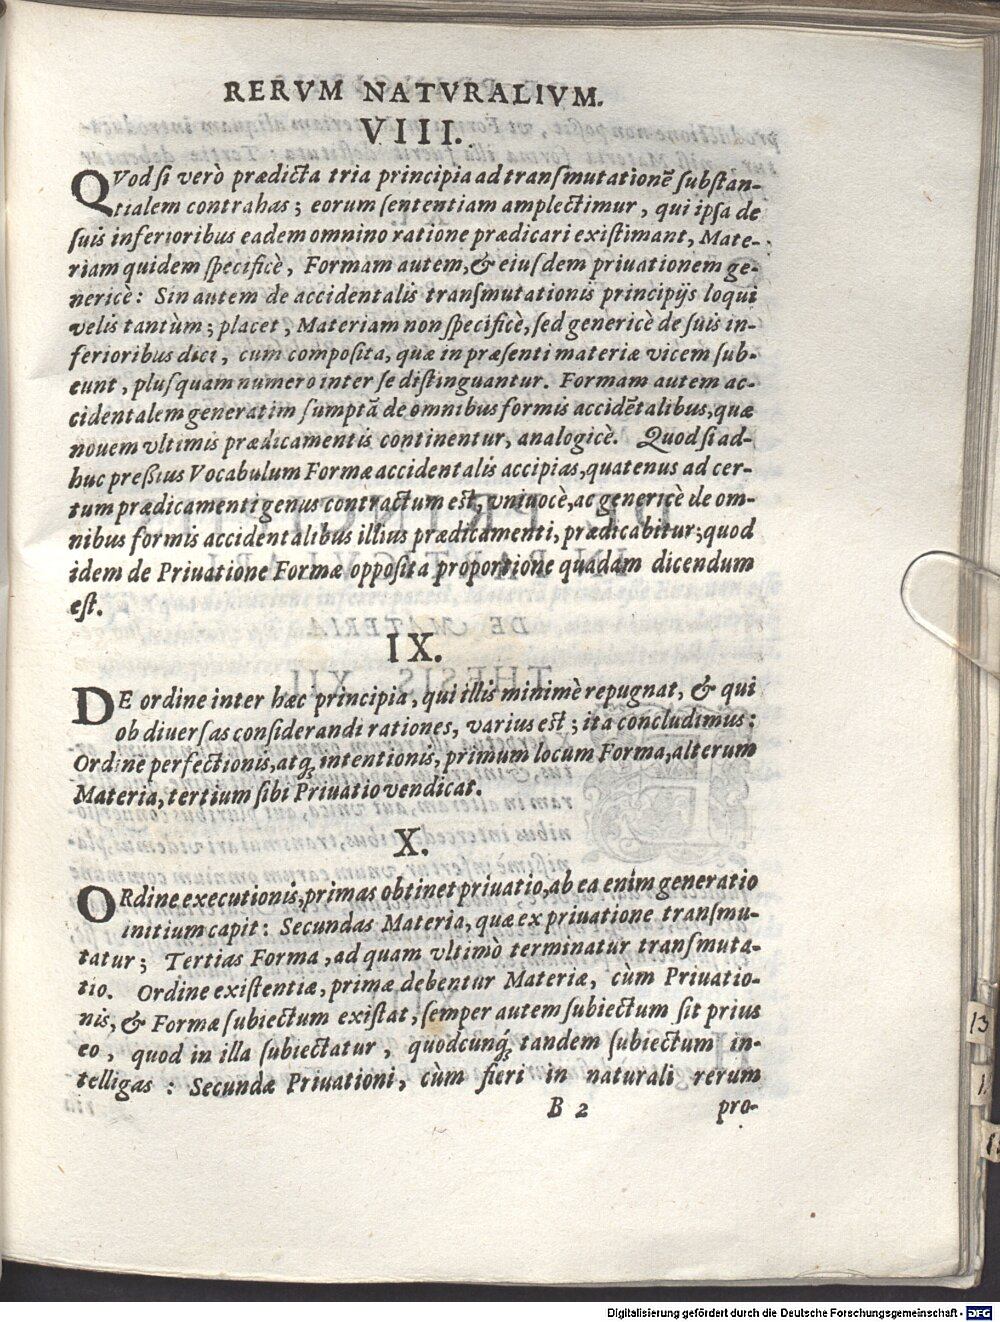 RERVM NATVRALIVM.
VIII.
QVod si verò prædicta tria principia ad transmutationẽ substan-
tialem contrahas; eorum sententiam amplectimur, qui ipsa de
suis inferioribus eadem omnino ratione prædicari existimant, Mate-
riam quidem specificè, Formam autem, & eiusdem priuationem ge-
nericè: Sin autem de accidentalis transmutationis principijs loqui
velis tantùm; placet, Materiam non specificè, sed genericè de suis in-
ferioribus dici, cum composita, quæ in præsenti materiæ vicem sub-
eunt, plusquam numero inter se distinguantur. Formam autem ac-
cidentalem generatim sumptã de omnibus formis accidẽtalibus, quæ
nouem vltimis prædicamentis continentur, analogicè. Quod si ad-
huc preßius Vocabulum Formæ accidentalis accipias, quatenus ad cer-
tum prædicamenti genus contractum est, vniuocè, ac genericè de om-
nibus formis accidentalibus illius prædicamenti, prædicabitur; quod
idem de Priuatione Formæ opposita proportione quadam dicendum
est.
IX.
DE ordine inter hæc principia, qui illis minimè repugnat, & qui
ob diuersas considerandi rationes, varius est; ita concludimus:
Ordine perfectionis, atq; intentionis, primum locum Forma, alterum
Materia, tertium sibi Priuatio vendicat.
X.
ORdine executionis, primas obtinet priuatio, ab ea enim generatio
initium capit: Secundas Materia, quæ ex priuatione transmu-
tatur; Tertias Forma, ad quam vltimò terminatur transmuta-
tio. Ordine existentiæ, primæ debentur Materiæ, cùm Priuatio-
nis, & Formæ subiectum existat, semper autem subiectum sit prius
eo, quod in illa subiectatur, quodcunq; tandem subiectum in-
telligas: Secundæ Priuationi, cùm fieri in naturali rerum
B 2 pro-
13
Digitalisierung gefördert durch die Deutsche Forschungsgemeinschaft - DFG